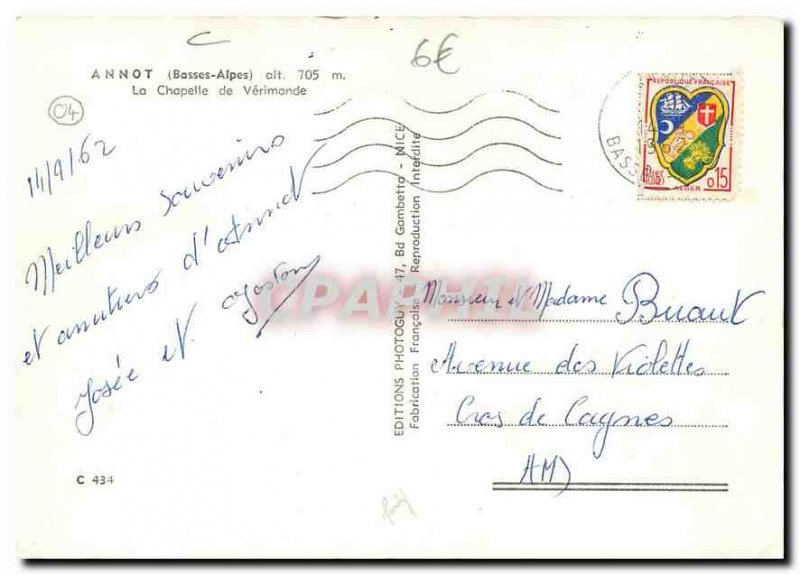 C
6€
ANNOT (Basses-Alpes) alt. 705 m.
La Chapelle de Vérimande
04
14/9/62
Meilleurs Souvenirs
et amitiés d'Annot
Josée et Gaston
C 434
EDITIONS PHOTOGUY - 47, Bd Gambetta - NICE
Fabrication Française Reproduction Interdite
CPAPHIL
REPUBLIQUE FRANÇAISE
ALGER
0,15
BASS
Monsieur et Madame
Avenue des Violettes
Cros de Cagnes
AM)